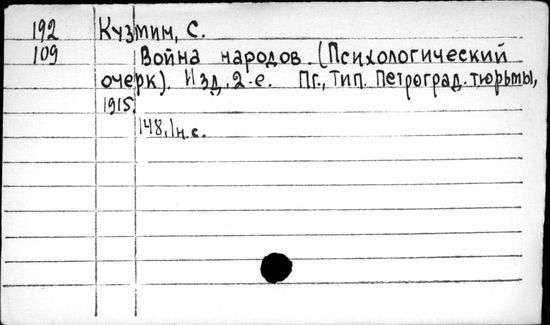 192 Кузмин, С.
109 Война народов. (Психологический
очерк). Изд. 2-е. Пг., Тип. Петроград. тюрьмы,
1915.
148, 1н.с.